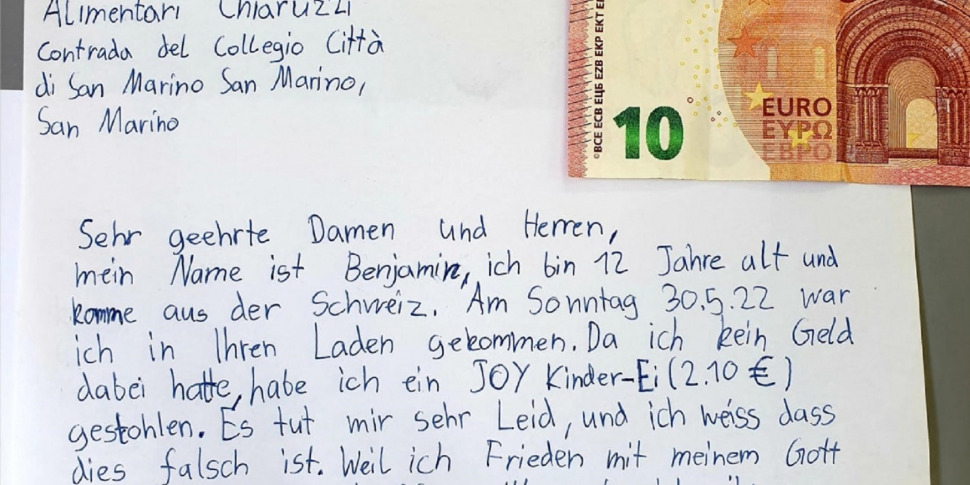 Alimentari Chiaruzzi
Contrada del Collegio Città
di San Marino San Marino,
San Marino
©BCE ECB ЕЦБ EZB EKP EKT
10
EURO
ΕΥΡΩ
ЕВРО
Sehr geehrte Damen und Herren,
mein Name ist Benjamin, ich bin 12 Jahre alt und
komme aus der Schweiz. Am Sonntag 30.5.22 war
ich in Ihren Laden gekommen. Da ich kein Geld
dabei hatte, habe ich ein JOY Kinder-Ei (2.10 €)
gestohlen. Es tut mir sehr Leid, und ich weiss dass
dies falsch ist. Weil ich Frieden mit meinem Gott